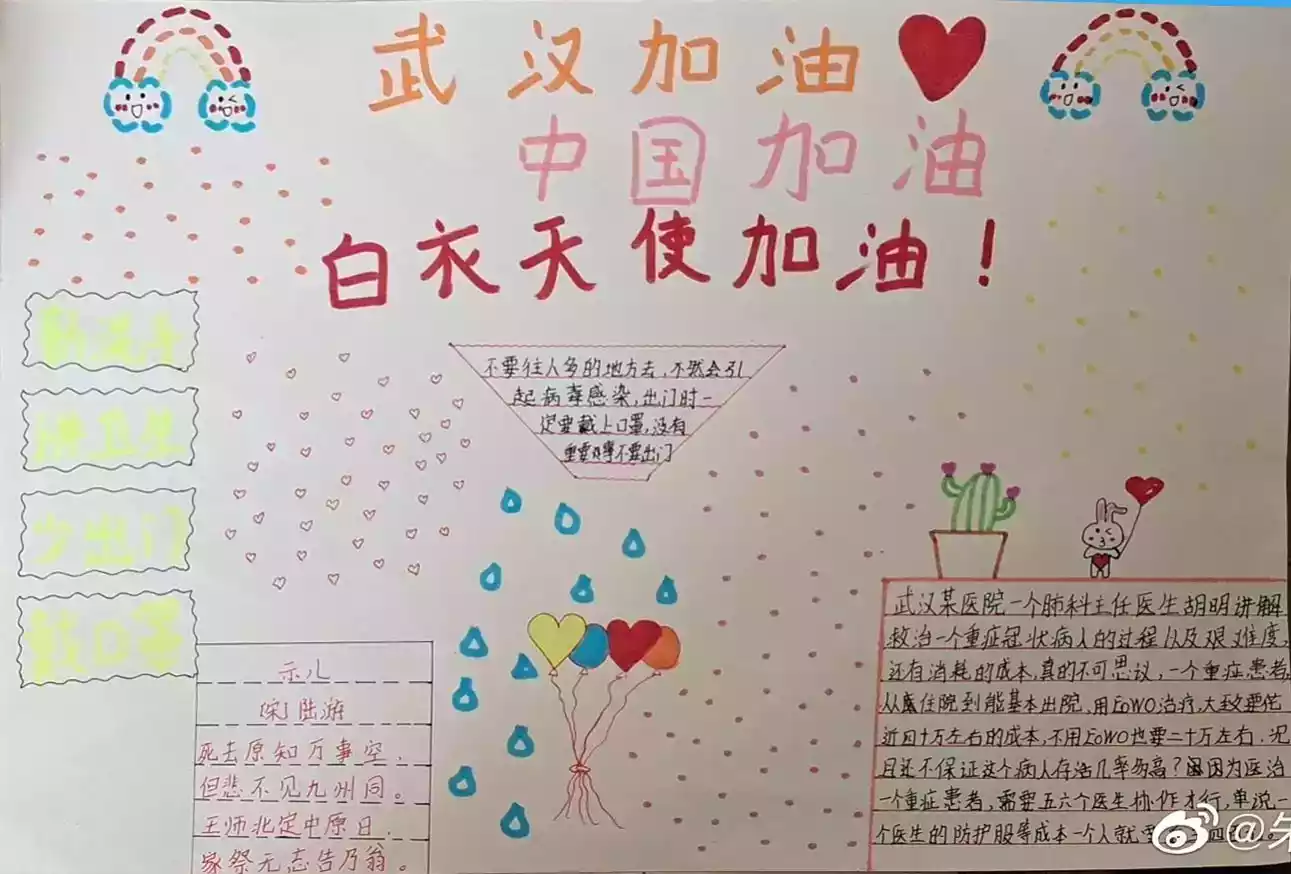 武汉加油
中国加油
白衣天使加油！
勤洗手
讲卫生
少出门
戴口罩
不要往人多的地方去，不然会引
起病毒感染，出门时一
定要戴上口罩，没有
重要事不要出门
示儿
[宋]陆游
死去原知万事空，
但悲不见九州同。
王师北定中原日，
家祭无忘告乃翁。
武汉某医院一个肺科主任医生胡明讲解
救治一个重症冠状病人的过程以及艰难度，
还有消耗的成本，真的不可思议，一个重症患者，
从住院到能基本出院，用EOWO治疗，大致要花
近四十万左右的成本，不用EOWO也要二十万左右。况
且还不保证这个病人存活几率多高？因为医治
一个重症患者，需要五六个医生协作才行，单说一
个医生的防护服等成本一个人就要
@朱